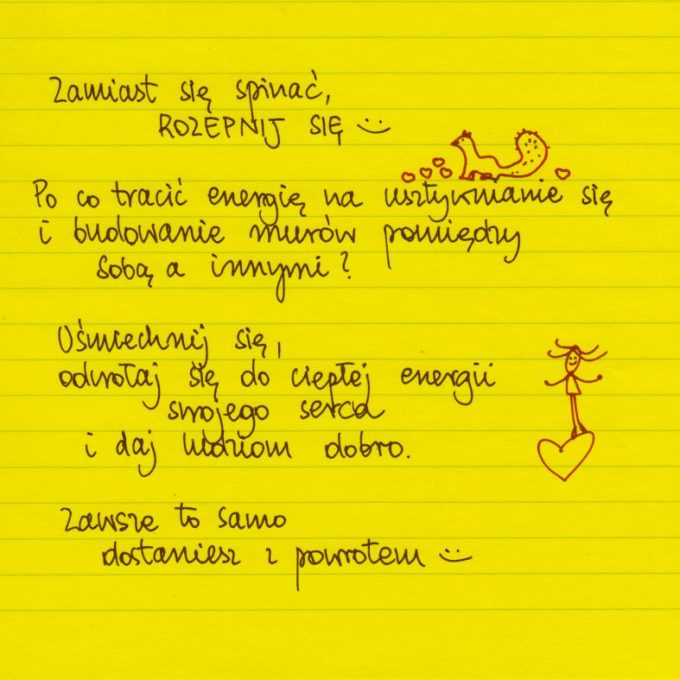 Zamiast się spinać,
ROZEPNIJ SIĘ :)
Po co tracić energię na usztywnianie się
i budowanie murów pomiędzy
sobą a innymi?
Uśmiechnij się,
odwołaj się do ciepłej energii
swojego serca
i daj ludziom dobro.
Zawsze to samo
dostaniesz z powrotem :)